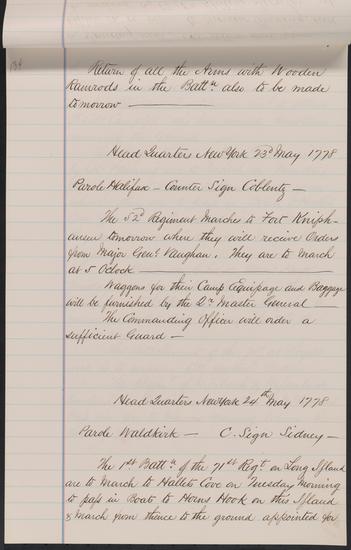 Return of all the Arms with Wooden
Ramrods in the Battn also to be made
tomorrow —
Head Quarters New York 23d May 1778
Parole Halifax — Counter Sign Coblentz —
The 52d Regiment Marches to Fort Kniph-
ausen tomorrow where they will recive Orders
from Major Genl Vaughan. They are to March
at 5 OClock —
Waggons for their Camp Equipage and Baggage
will be furnished by the Qr Master General —
The Commanding Officer will order a
sufficient Guard —
Head Quarters New York 24th May 1778
Parole Waldkirk — C. Sign Sidney —
The 1st Battn of the 71st Regt on Long Island
are to March to Hallets Cove on Tuesday Morning
to pass in Boats to Horns Hook on this Island
& March from thence to the ground appointed for